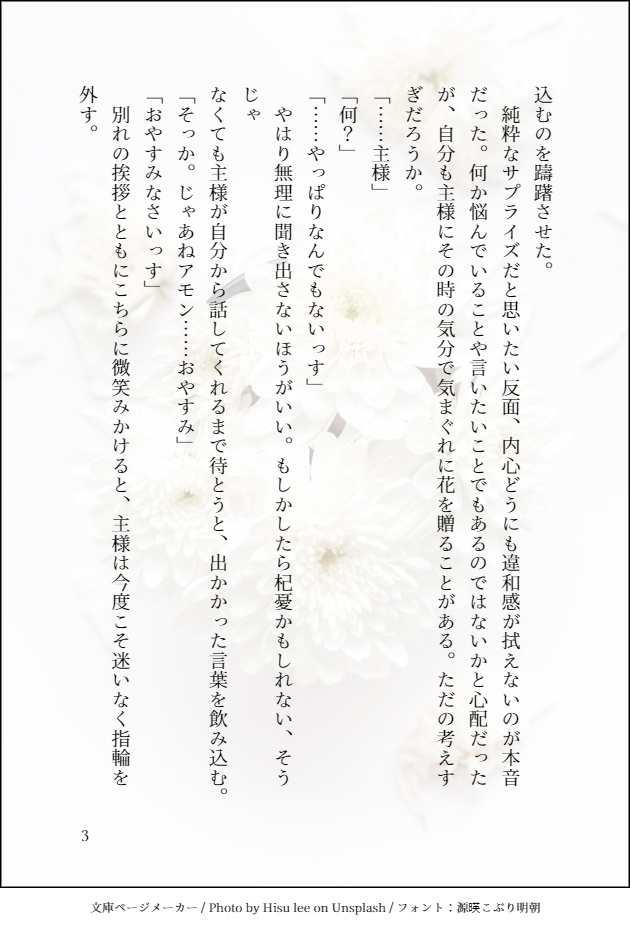 込むのを躊躇させた。
　純粋なサプライズだと思いたい反面、内心どうにも違和感が拭えないのが本音
だった。何か悩んでいることや言いたいことでもあるのではないかと心配だった
が、自分も主様にその時の気分で気まぐれに花を贈ることがある。ただの考えす
ぎだろうか。
「……主様」
「何？」
「……やっぱりなんでもないっす」
　やはり無理に聞き出さないほうがいい。もしかしたら杞憂かもしれない、そう
じゃ
なくても主様が自分から話してくれるまで待とうと、出かかった言葉を飲み込む。
「そっか。じゃあねアモン……おやすみ」
「おやすみなさいっす」
　別れの挨拶とともにこちらに微笑みかけると、主様は今度こそ迷いなく指輪を
外す。
3
文庫ページメーカー / Photo by Hisu lee on Unsplash / フォント：源暎こぶり明朝